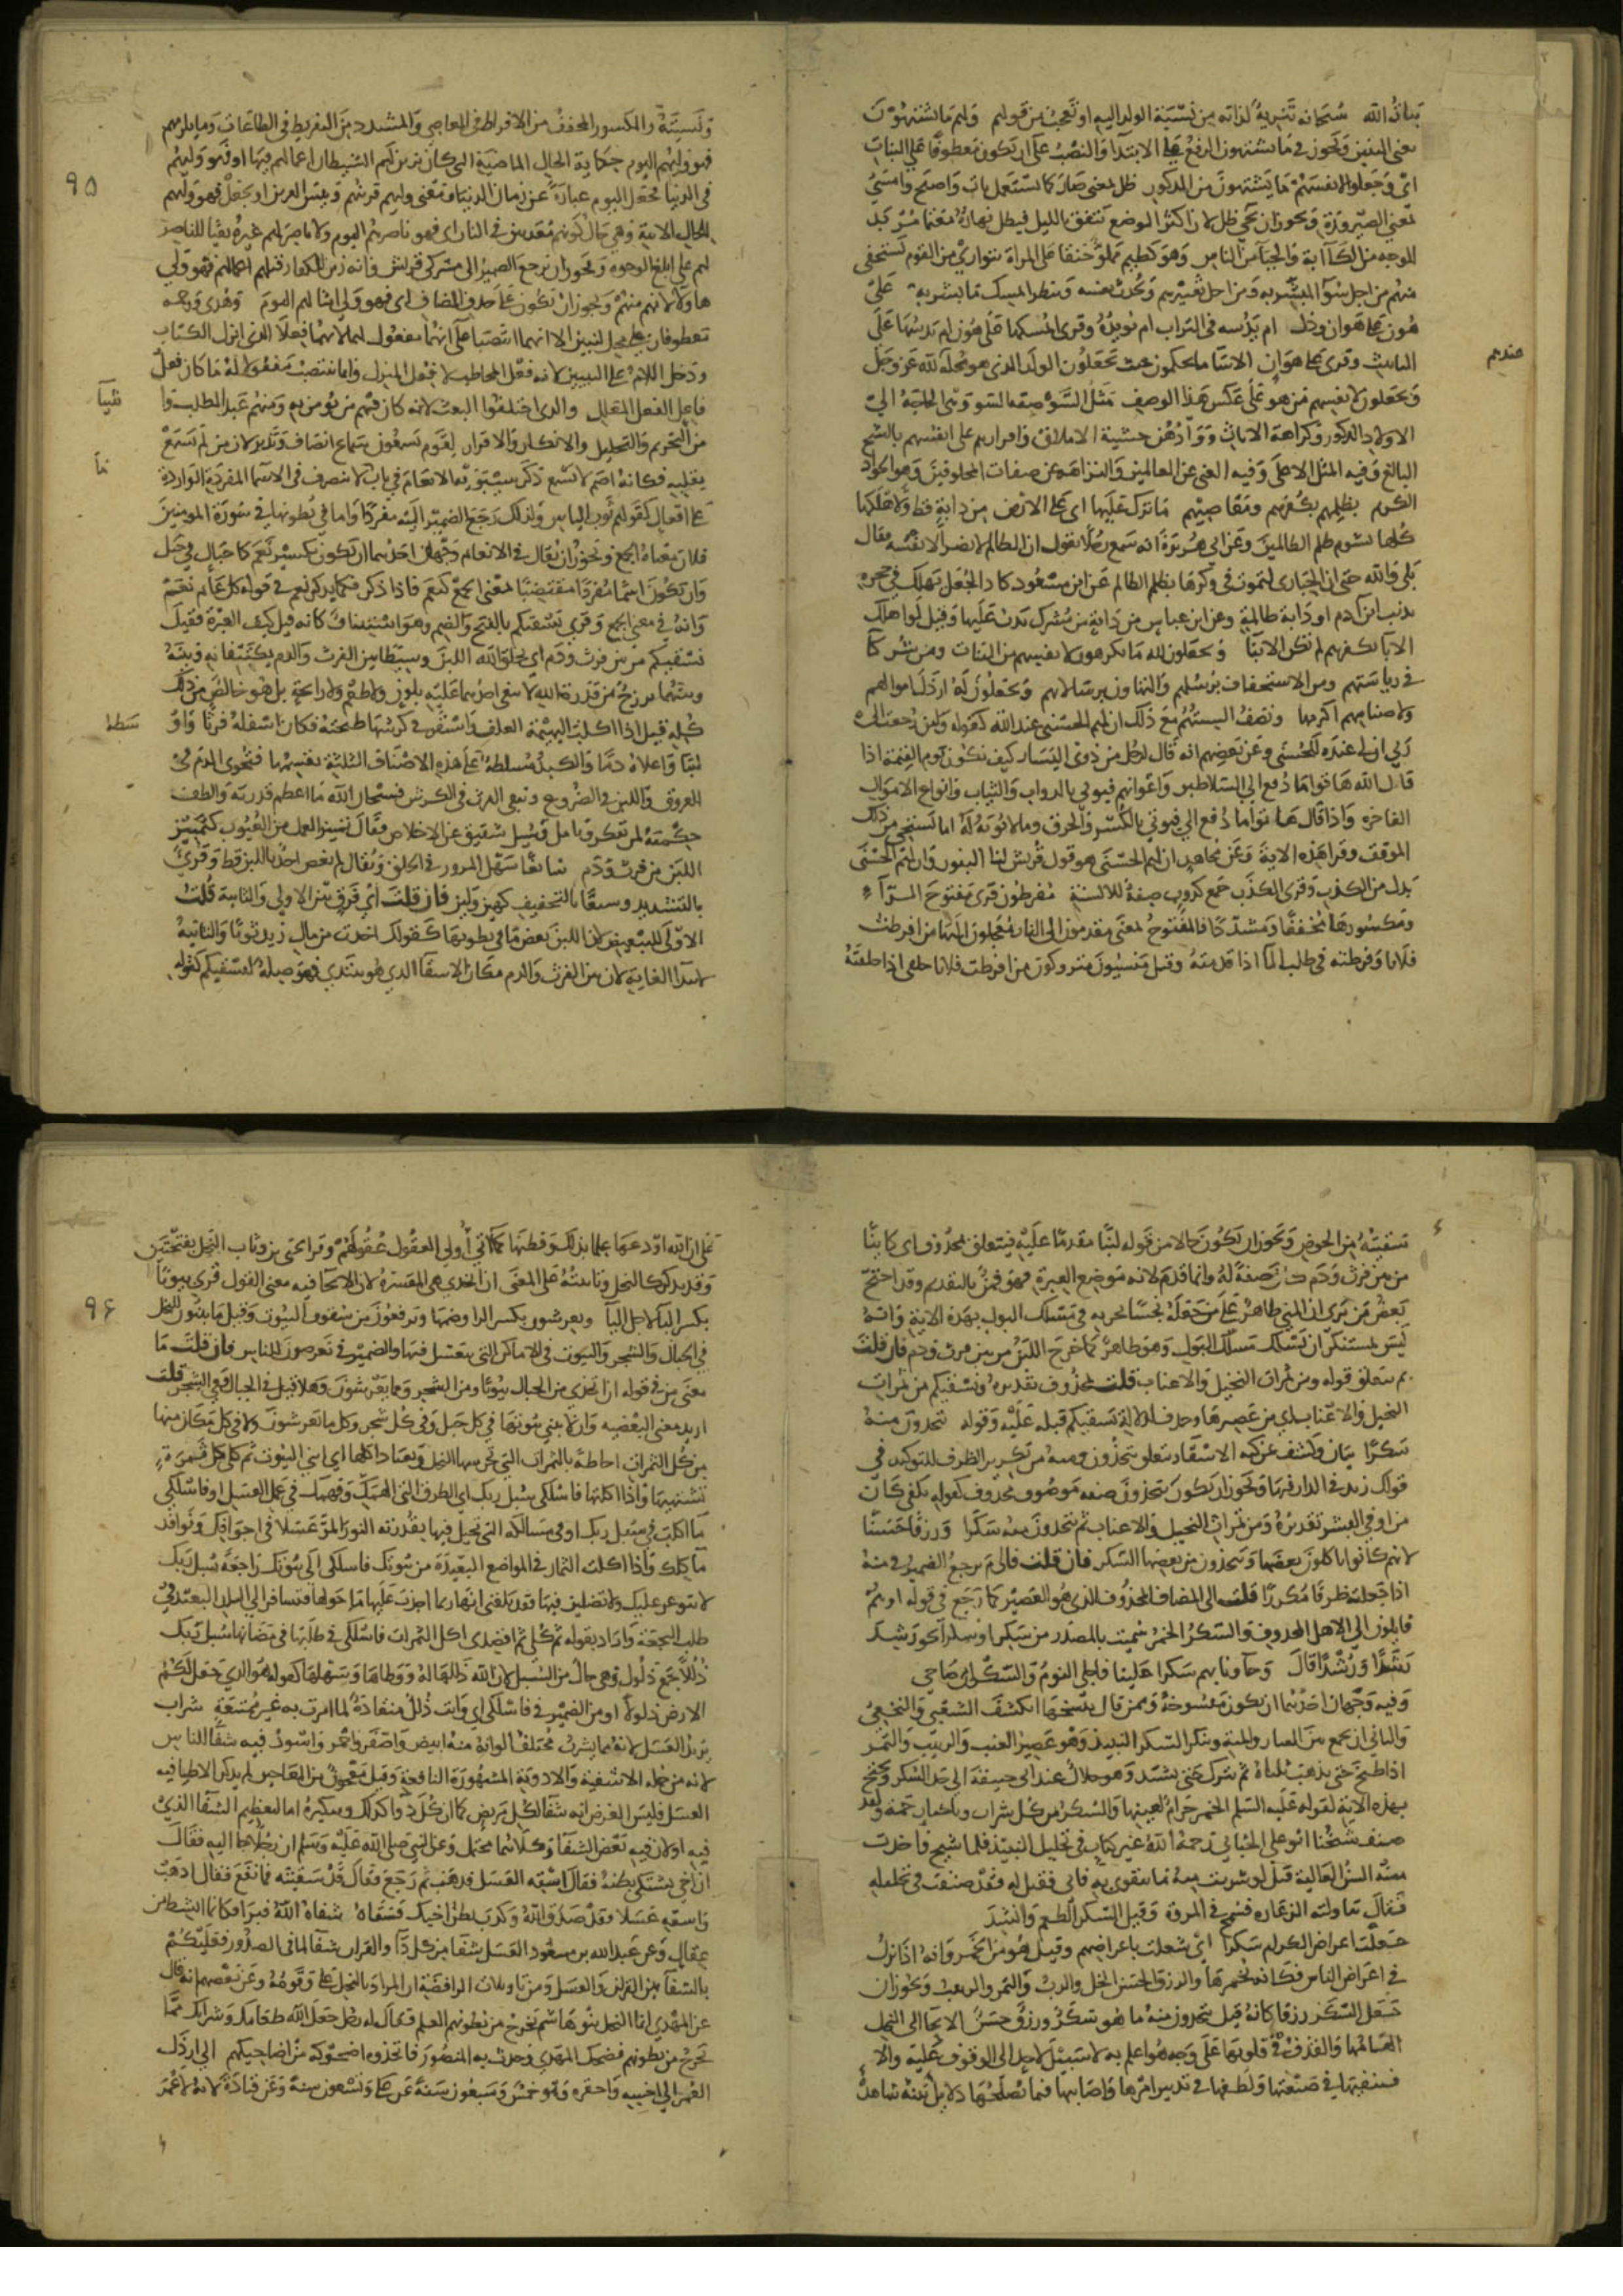 بنات الله سبحانه تنزيه لذاته من نسبة الولد اليه او تعجب من قولهم ولهم ما يشتهون
يعني البنين ويجوز في ما يشتهون الرفع على الابتدا والنصب على ان يكون معطوفا على البنات
اي وجعلوا لانفسهم ما يشتهون من الذكور ظل بمعنى صار كما يستعمل بات واصبح وامسى
بمعنى الصيرورة ويجوز ان يجي ظل لان اكثر الوضع يتفق بالليل فيظل نهاره مغتما مربد
الوجه من الكآبة والحيا من الناس وهو كظيم مملو حنقا على المراة يتوارى من القوم يستخفي
منهم من اجل سوء المبشر به ومن اجل تعييرهم ويحدث نفسه وينظر ايمسك ما بشر به على
هون على هوان وذل ام يدسه في التراب ام يئده وقرئ ايمسكها على هون ام يدسها على
التانيث وقرئ على هوان الا ساء ما يحكمون حيث يجعلون الولد الذي هو محله لله عز وجل
عندهم
ويجعلون لانفسهم من هو على عكس هذا الوصف مثل السوء صفة السوء وهي الحاجة الى
الاولاد الذكور وكراهة الاناث ووأدهن خشية الاملاق واقرارهم على انفسهم بالشح
البالغ وفيه المثل الاعلى وفيه الغني عن العالمين والنزاهة عن صفات المخلوقين وهو الجواد
الكريم بظلمهم بكفرهم ومعاصيهم ما ترك عليها اي على الارض من دابة قط ولاهلكها
كلها بشوم ظلم الظالمين وعن ابي هريرة انه سمع رجلا يقول ان الظالم لا يضر الا نفسه فقال
بلى والله حتى ان الحبارى لتموت في وكرها بظلم الظالم عن ابن مسعود كاد الجعل يهلك في جحره
بذنب ابن آدم او دابة ظالمة وعن ابن عباس من دابة من مشرك يدب عليها وقيل لو اهلك
الابا بكفرهم لم تكن الابنا ويجعلون لله ما يكرهون لانفسهم من البنات ومن شركآ
في رياستهم ومن الاستخفاف برسلهم والتهاون برسالاتهم ويجعلون له ارذل اموالهم
ولاصنامهم اكرمها وتصف السنتهم مع ذلك ان لهم الحسنى عند الله كقوله ولئن رجعت الى
ربي ان لي عنده للحسنى وعن بعضهم انه قال لرجل من ذوي اليسار كيف تكون يوم القيمة اذا
قال الله هاتوا ما دفع الي السلاطين واعوانهم فيوتى بالدواب والثياب وانواع الاموال
الفاخرة واذا قال هاتوا ما دفع الي فيوتي بالكسر والخرق وما لا يوبه له اما تستحي من ذلك
الموقف وقرا هذه الاية وعن مجاهد ان لهم الحسنى هو قول قريش لنا البنون وان لهم الحسنى
بدل من الكذب وقرئ الكذب جمع كذوب صفة للالسنة مفرطون قرئ مفتوح الرآ
ومكسورها مخففا ومشددا فالمفتوح بمعنى مقدمون الى النار معجلون اليها من افرطت
فلانا وفرطته في طلب المآ اذا قدمته وقيل منسيون متروكون من افرطت فلانا خلفي اذا خلفته
ونسيته والمكسور المخفف من الافراط في المعاصي والمشدد من التفريط في الطاعات وما يلزمهم
فهو وليهم اليوم حكاية الحال الماضية التي كان يزين لهم الشيطان اعمالهم فيها او فهو وليهم
٩٥
في الدنيا فجعل اليوم عبارة عن زمان الدنيا ومعنى وليهم قرينهم وبئس القرين او يجعل فهو وليهم
للحال الاتية وهي حال كونهم معذبين في النار اي فهو ناصرهم اليوم ولا ناصر لهم غيره نفيا للناصر
لهم على ابلغ الوجوه ويجوز ان يرجع الضمير الى مشركي قريش فانه زين للكفار قبلهم اعمالهم فهو ولي
هاولا لانهم منهم ويجوز ان يكون على حذف المضاف اي فهو ولي امثالهم اليوم وهدى ورحمة
معطوفان على محل لتبين الا انهما انتصبا على انهما مفعول لهما لانهما فعلا الذي انزل الكتاب
ودخل اللام على لتبين لانه فعل المخاطب لا فعل المنزل وانما ينتصب مفعولا له ما كان فعل
فاعل الفعل المعلل والذي اختلفوا البعث لانه كان فيهم من يومن به ومنهم عبد المطلب واشيآ
من التحريم والتحليل والانكار والاقرار لقوم يسمعون سماع انصاف وتدبر لان من لم يسمع
بقلبه فكانه اصم لا يسمع ذكر سيبويه الانعام في باب ما لا ينصرف في الاسما المفردة الواردة
على افعال كقولهم ثوب اكياس ولذلك رجع الضمير اليه مفردا واما في بطونها في سورة المومنين
فلان معناه الجمع ويجوز ان يقال في الانعام وجهان احدهما ان يكون تكسير نعم كاجبال في جبل
وان يكون اسما مفردا مقتضيا لمعنى الجمع كنعم فاذا ذكر فكما يذكر نعم في قوله كل عام نعم
وانه في معنى الجمع وقرئ نسقيكم بالفتح والضم وهو استيناف كانه قيل كيف العبرة فقيل
نسقيكم من بين فرث ودم اي يخلق الله اللبن وسيطا بين الفرث والدم يكتنفانه وبينه
وبينهما برزخ من قدرة الله لا يبغي احدهما عليه بلون ولا طعم ولا رايحة بل هو خالص من ذلك
كله قيل اذا اكلت البهيمة العلف واستقر في كرشها طبخته فكان اسفله فرثا واوسطه
لبنا واعلاه دما والكبد مسلطة على هذه الاصناف الثلثة تقسمها فتجري الدم في
العروق واللبن في الضروع وتبقي الفرث في الكرش فسبحان الله ما اعظم قدرته والطف
حكمته لمن تفكر وتامل وسيل شقيق عن الاخلاص فقال تمييز العمل من العيوب كتمييز
اللبن من فرث ودم سائغا سهل المرور في الحلق ويقال لم يغص احد باللبن قط وقرئ
بالتشديد وسيغا بالتخفيف كهين ولين فان قلت اي فرق بين الاولى والثانية قلت
الاولى للتبعيض لان اللبن بعض ما في بطونها كقولك اخذت من مال زيد ثوبا والثانية
لابتدا الغاية لان بين الفرث والدم مكان الاسقآ الذي هو مبتدى فهو صلة لنسقيكم كقوله
سقيته من الحوض ويجوز ان يكون حالا من قوله لبنا مقدما عليه فيتعلق بمحذوف اي كاينا
من بين فرث ودم صفة له وانما قدم لانه موضع العبرة فهو قمن بالتقديم وقد احتج
بعض من يرى ان المني طاهر على من جعله نجسا لجريه في مسلك البول بهذه الاية وانه
ليس بمستنكر ان يسلك مسلك البول وهو طاهر كما خرج اللبن من بين فرث ودم فان قلت
بم يتعلق قوله ومن ثمرات النخيل والاعناب قلت بمحذوف تقديره ونسقيكم من ثمرات
النخيل والاعناب اي من عصيرها وحذف لدلالة نسقيكم قبله عليه وقوله تتخذون منه
سكرا بيان وكشف عن كنه الاسقا او يتعلق بتتخذون ومنه من تكرير الظرف للتوكيد في
قولك زيد في الدار فيها ويجوز ان يكون تتخذون صفة موصوف محذوف كقوله بكفي كان
من ارمى البشر تقديره ومن ثمرات النخيل والاعناب ثمر تتخذون منه سكرا ورزقا حسنا
لانهم كانوا ياكلون بعضها ويتخذون من بعضها السكر فان قلت فالى م يرجع الضمير في منه
اذا جعلته ظرفا مكررا قلت الى المضاف المحذوف الذي هو العصير كما رجع في قوله او هم
قايلون الى الاهل المحذوف والسكر الخمر سميت بالمصدر من سكر سكرا وسكرا نحو رشد
رشدا ورشدا قال وجآونا بهم سكر علينا فاجلى اليوم والسكران صاحي
وفيه وجهان احدهما ان يكون منسوخة وممن قال بنسخها الشعبي والنخعي
والثاني ان يجمع بين العتاب والمنة وقيل السكر النبيذ وهو عصير العنب والزبيب والتمر
اذا طبخ حتى يذهب ثلثاه ثم يترك حتى يشتد وهو حلال عند ابي حنيفة الى حد السكر ويحتج
بهذه الاية لقوله عليه السلم الخمر حرام لعينها والسكر من كل شراب وباخبار جمة ولقد
صنف شيخنا ابو علي الجبائي رحمه الله غير كتاب في تحليل النبيذ فلما شيخ واخذت
منه السن العالية قيل لو شربت منه ما تتقوى به فابى فقيل له فقد صنفت في تحليله
فقال تناولته الدعارة فسمج في المروة وقيل السكر الطعم وانشد
جعلت اعراض الكرام سكرا اي تنقلت باعراضهم وقيل هو من الخمر وانه اذا ابترك
في اعراض الناس فكانه تخمر بها والرزق الحسن الخل والرب والتمر والزبيب ويجوز ان
يجعل السكر رزقا كانه قيل تتخذون منه ما هو سكر ورزق حسن الايحا الى النحل
الهامها والقذف في قلوبها على وجه هو اعلم به لا سبيل لاحد الى الوقوف عليه والا
فنيقتها في صنعتها ولطفها في تدبير امرها واصابتها فيما يصلحها دلايل بينة شاهدة
على ان الله اودعها علما بذلك وفطنها كما اولي اولي العقول عقولهم وقرا يحيى بن وثاب النحل بفتحتين
وقد يذكر كالنحل وتانيثه على المعنى ان اتخذي هي المفسرة لان الايحا فيه معنى القول قرئ بيوتا
بكسر البا لاجل اليآ ويعرشون بكسر الرا وضمها وترفعون من سقوف البيوت وقيل ما يبنون للنحل
٩٦
في الجبال والشجر والبيوت في الاماكن التي يتعسل فيها والضمير في يعرشون للناس فان قلت ما
معنى من في قوله ان اتخذي من الجبال بيوتا ومن الشجر ومما يعرشون وهلا قيل في الجبال وفي الشجر قلت
اريد معنى البعضية وان لا تبني بيوتها في كل جبل وفي كل شجر وكل ما يعرش ولا في كل مكان منها
من كل الثمرات احاطة بالثمرات التي تجرسها النحل وتعتاد اكلها اي ابني البيوت ثم كلي كل ثمرة
تشتهيها واذا اكلتها فاسلكي سبل ربك اي الطرق التي الهمك وفهمك في عمل العسل او فاسلكي
ما اكلت في سبل ربك او في مسالكه التي يحيل فيها بقدرته النور المر عسلا في اجوافك ومنافذ
ماكلك واذا اكلت الثمار في المواضع البعيدة من بيوتك فاسلكي الى بيوتك راجعة سبل ربك
لا تتوعر عليك ولا تضلين فيها فقد بلغني انها ربما اجدب عليها ما حولها فتسافر الى البلد البعيد في
طلب النجعة واراد بقوله ثم كلي ثم اقصدي اكل الثمرات فاسلكي في طلبها في مظانها سبل ربك
ذللا جمع ذلول وهي حال من السبل لان الله ذللها له ووطاها وسهلها كقوله هو الذي جعل لكم
الارض ذلولا او من الضمير في فاسلكي اي وانت ذلل منقادة لما امرت به غير ممتنعة شراب
يريد العسل لانه مما يشرب مختلف الوانه منه ابيض واصفر واحمر واسود فيه شفا للناس
لانه من جملة الاشفية والادوية المشهورة النافعة وقل معجون من المعاجين لم يذكر الاطبا فيه
العسل فليس الغرض انه شفا لكل مريض كما ان كل دوآ كذلك وتنكيره اما لتعظيم الشفا الذي
فيه او لان فيه بعض الشفا وكلاهما محتمل وعن النبي صلى الله عليه وسلم ان رجلا جا اليه فقال
ان اخي يشتكي بطنه فقال اسقه العسل فذهب ثم رجع فقال قد سقيته فما نفع فقال اذهب
واسقه عسلا فقد صدق الله وكذب بطن اخيك فسقاه شفاه الله فبرا فكانما انشط من
عقال وعن عبد الله بن مسعود العسل شفا من كل دآ والقران شفا لما في الصدور فعليكم
بالشفآ من القران والعسل ومن تاويلات الرافضة ان المراد بالنحل علي وقومه وعن بعضهم انه قال
عن المهدي انما النحل بنو هاشم يخرج من بطونهم العلم فقال له رجل جعل الله طعامك وشرابك مما
يخرج من بطونهم فضحك المهدي وحدث به المنصور فاتخذوه اضحوكة من اضاحيكهم الى ارذل
العمر الى اخسه واحقره وهو خمس وسبعون سنة عن علي وتسعون سنة وعن قتادة لانه لا عمر